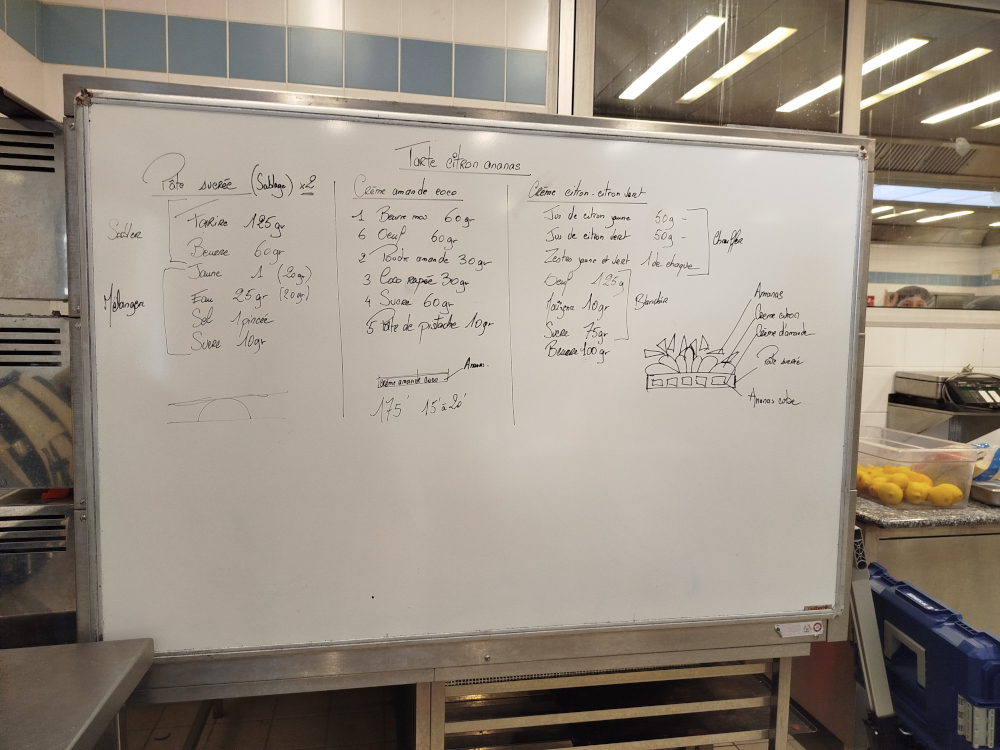 Tarte citron ananas
Pâte sucrée (Sablage) x2
Sabler
Farine 125gr
Beurre 60gr
Mélanger
Jaune 1 (20gr)
Eau 25gr (20gr)
Sel 1 pincée
Sucre 10gr
Crème amande coco
1 Beurre mou 60gr
6 Oeuf 60gr
2 Poudre amande 30gr
3 Coco rapée 30gr
4 Sucre 60gr
5 Pâte de pistache 10gr
Ananas
Crème amande coco
175° 15' à 20'
Crème citron-citron vert
Jus de citron jaune 50g -
Jus de citron vert 50g -
Zestes jaune et vert 1 de chaque
Chauffer
Oeuf 125g
Maïzena 10gr
Sucre 75gr
Blanchir
Beurre 100gr
Ananas
Crème citron
Crème d'amande
Pâte sucrée
Ananas cube